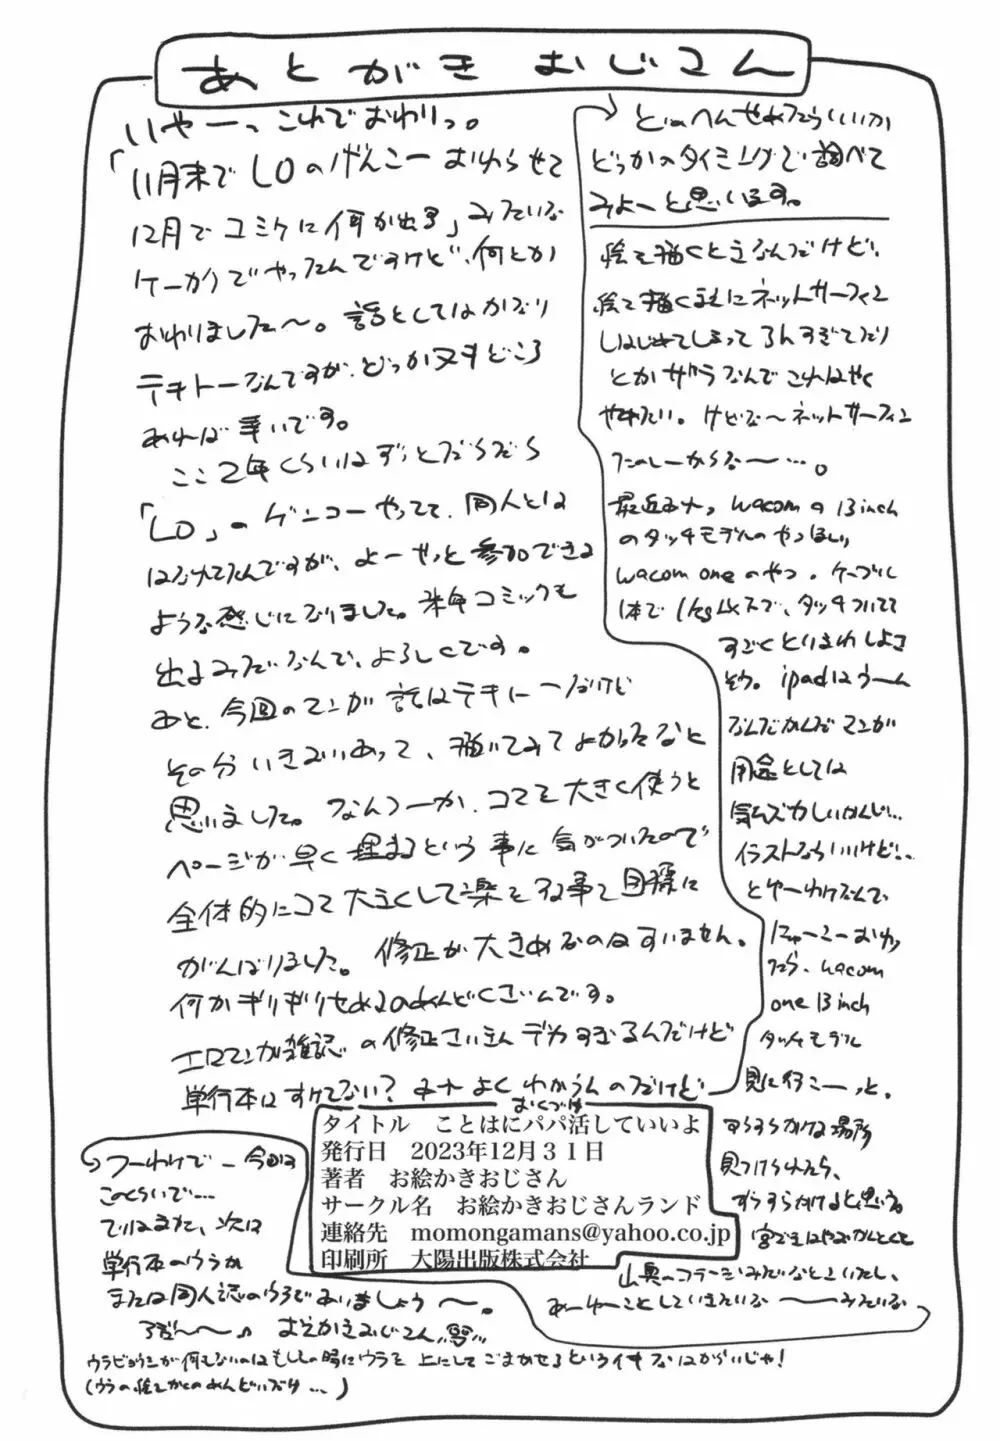 あとがき おじさん
いやーっ これでおわりっ。
「11月末で LO のげんこー おわらせて
12月で コミケに 何か出す」みたいな
ケーカクで やってたんですけど、何とか
おわりました〜。 話としてはかなり
テキトーなんですが、どっか 又キどころ
あれば 幸いです。
ここ2年くらいはずっとだらだら
「LO」の ゲンコー やってて、同人とは
はなれてたんですが、よーやっと 参加できる
ような感じになりました。来年 コミックも
出るみたいなんで、よろしくです。
あと、今回のマンガ 話はテキトーだけど
その分 いきおいあって、描いてみて よかったなと
思いました。 なんつーか、コマを 大きく使うと
ページが 早く 埋まるという 事に 気がついたので
全体的にコマ 大きくして 楽を する事を 目標に
がんばりました。 修正が 大きめ なのは すいません。
何か ギリギリせめるの めんどくさいんです。
エロマンガ雑誌 の 修正 さいきん デカすぎるんだけど
単行本は すけてない? みんな よく わかんのだけど
どのへん せめたらいいか
どっかのタイミングで 調べて
みよーと思います。
絵を描くときなんだけど、
絵を描くまえにネットサーフィン
はじめてしまって
とか ザラなんで これはやく
やめたい。 けどな〜 ネットサーフィン
たのしーからな〜…。
最近さ、 wacom の 13 inch
のタッチモデルのやつほしい
wacom one のやつ。ケーブル
1本で 1kg以下で、タッチついてて
すごくとりまわしよさ
そう。 ipadは うーん
なんだかんだ マンガ
用途としては
気ムズカしいかんじ…
イラストならいいけど…
とゆーわけなんで、
にゅーこーおわっ
たら、wacom
one 13 inch
タッチモデル
見に行こーっと。
すらすらかける場所
見つけられたら、
すらすらかけると思いる。
山奥のコテージみたいなとこいたし、
あーゆーことしていきたいな 〜〜みたいな
つーわけで – 今回は
このくらいで…
ではまた、次は
単行本のウラか
または同人誌のウラで あいましょう 〜。
では〜〜♪ おえかきおじさん
ウラビョウシが何もないのは もしもの時に ウラを 上にして ごまかせる というイキな はからいじゃ!
(ウラの絵をかくのめんどいだけ …)
おくづけ
タイトル　ことはにパパ活していいよ
発行日　2023年12月３１日
著者　お絵かきおじさん
サークル名　お絵かきおじさんランド
連絡先　momongamans@yahoo.co.jp
印刷所　大陽出版株式会社